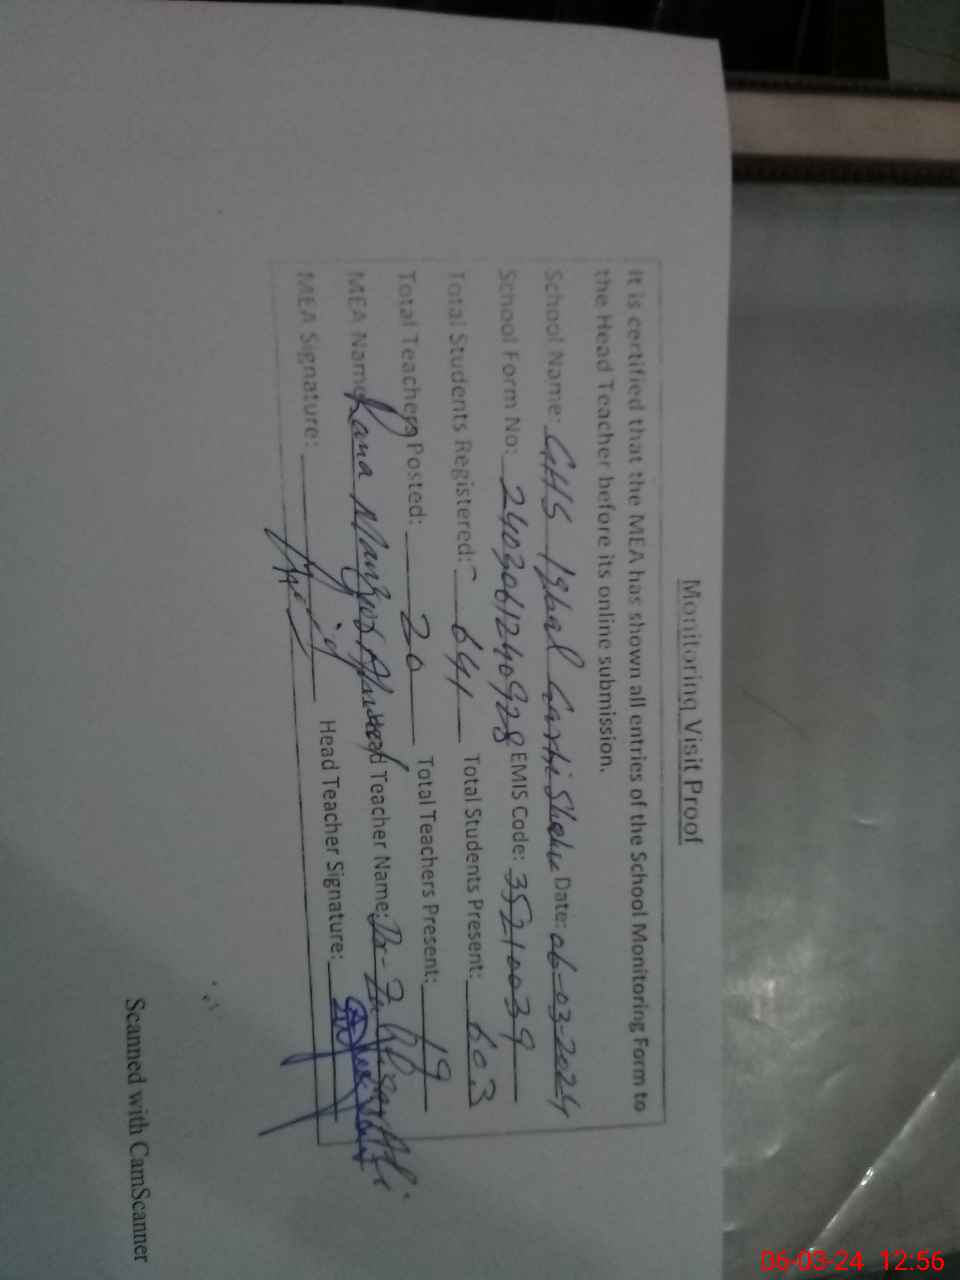 Monitoring Visit Proof
It is certified that the MEA has shown all entries of the School Monitoring Form to
the Head Teacher before its online submission.
School Name: GHS Iqbal Garhi Shahu Date: 06-03-2024
School Form No: 2403061240928 EMIS Code: 35210039
Total Students Registered: 644 Total Students Present: 603
Total Teachers Posted: 20 Total Teachers Present: 19
MEA Name: Rana Manzoor Ahmad Head Teacher Name: Dr. Zulfiqar Ali
MEA Signature: Head Teacher Signature:
Scanned with CamScanner
06-03-24 12:56